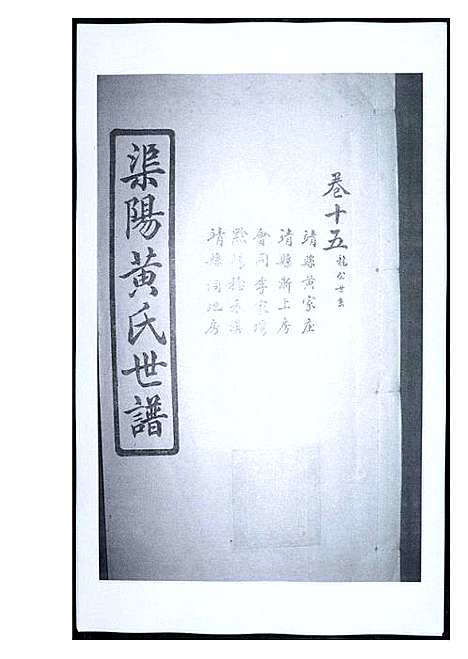 卷十五
靖縣黃家庄
靖縣新上房
會同李家灣
靖縣洞地房
渠陽黃氏世譜